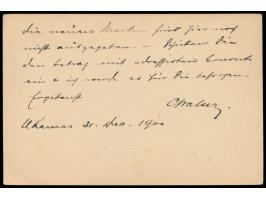 die neuen Marken sind hier noch
nicht ausgegeben. — Schicken Sie
den Betrag mit adressirtem Couvert
ein & ich werde es für Sie besorgen.
Ergebenst
Ukamas 31. Dec. 1900